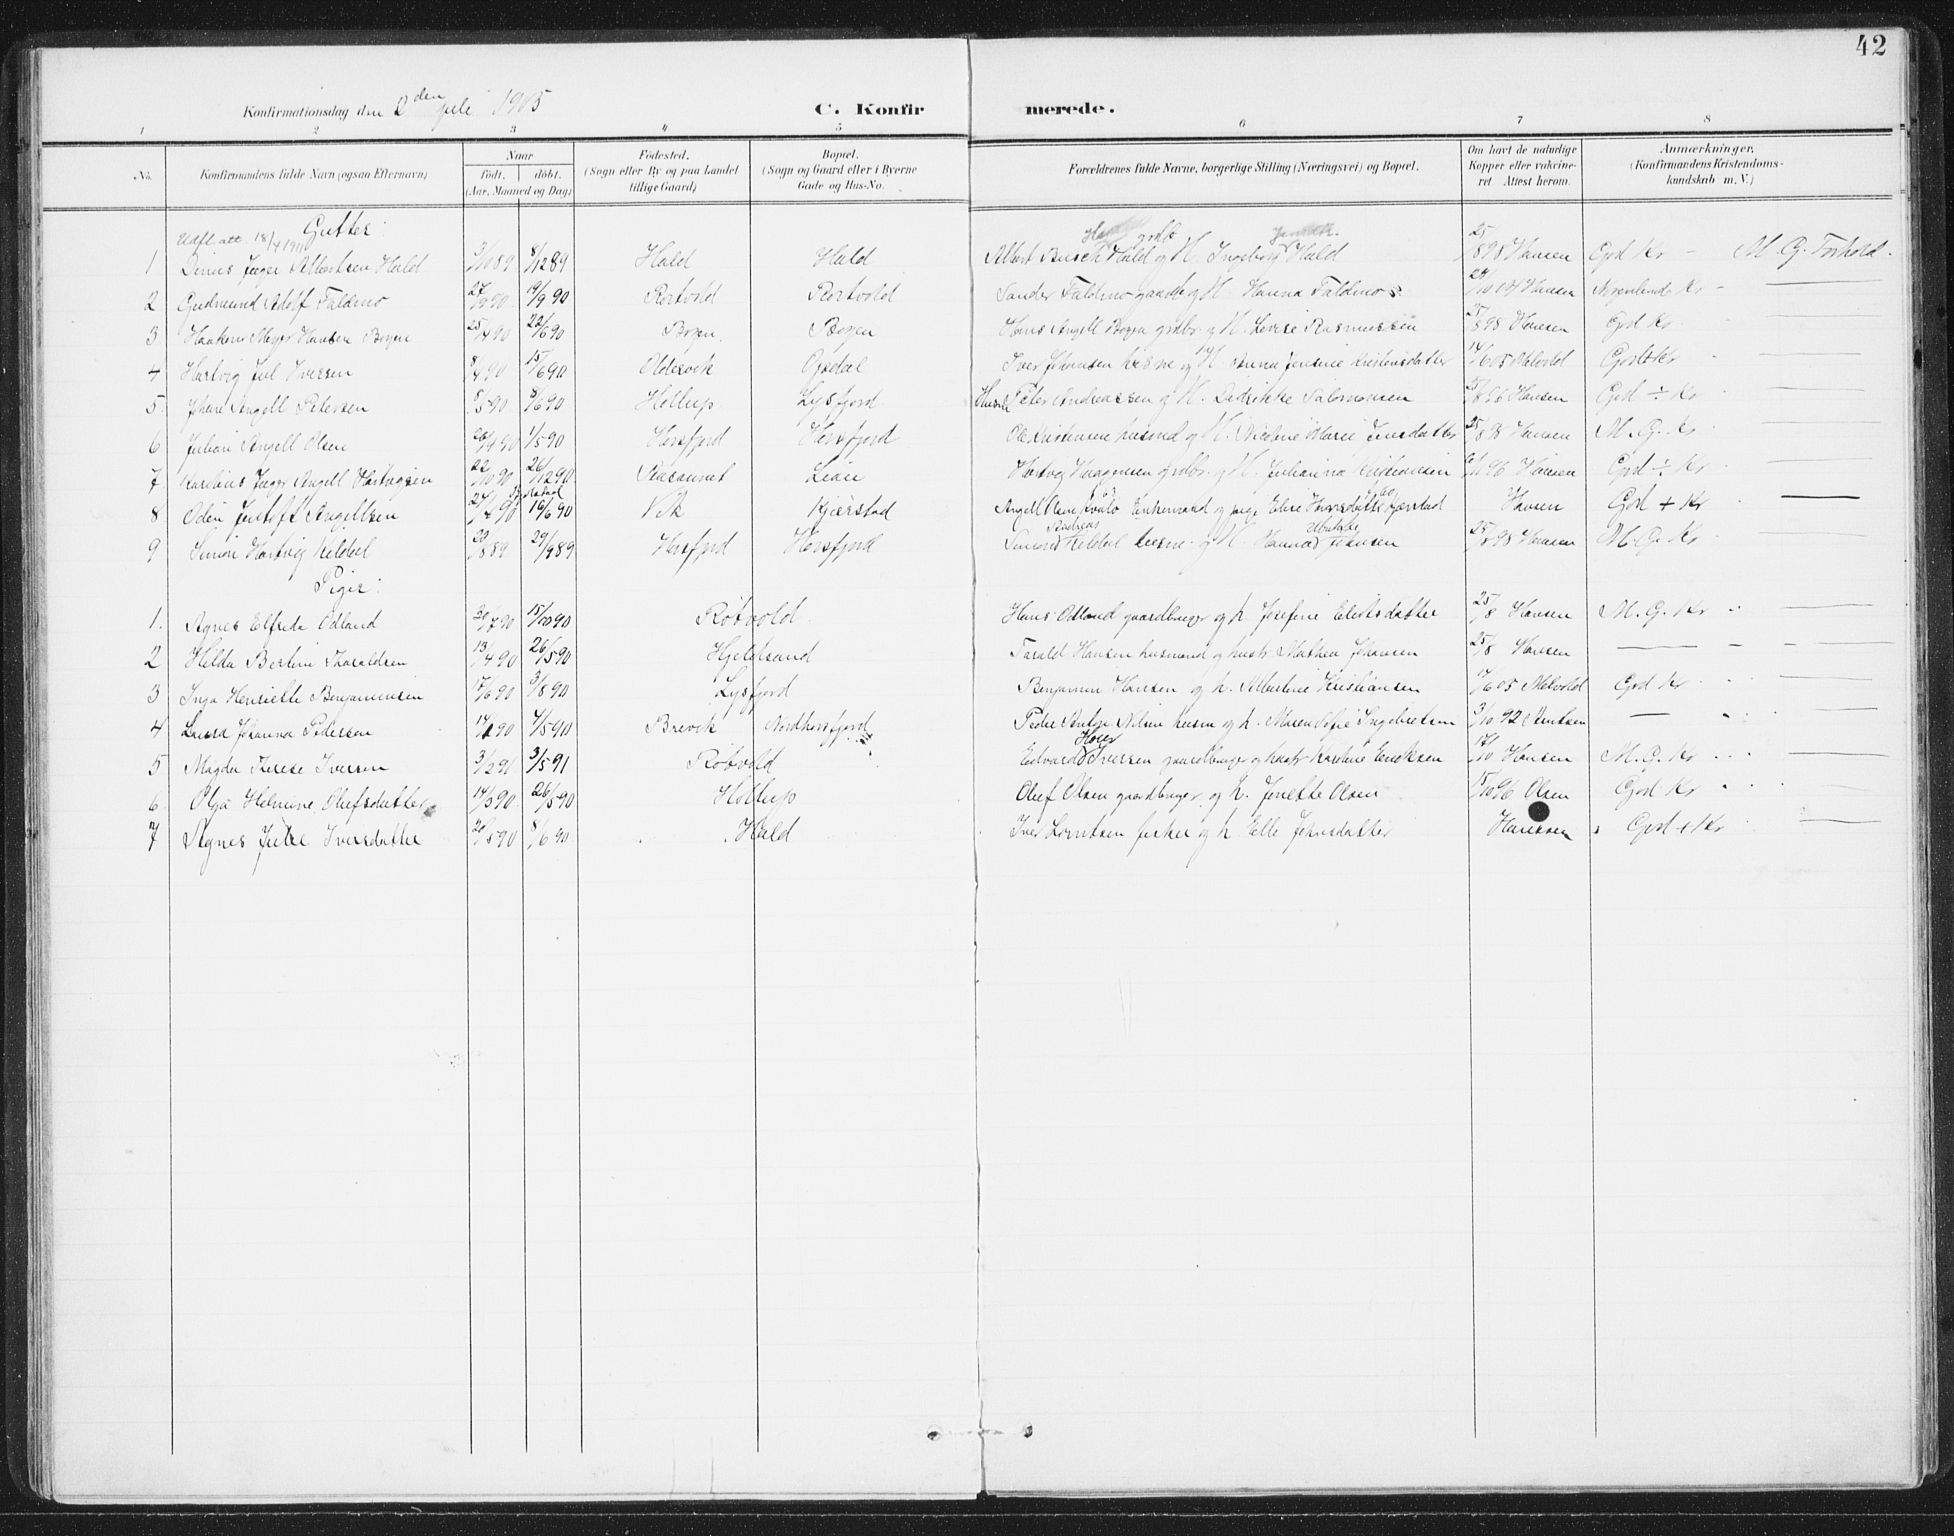 42
Konfirmationsdag den 2den Juli 1905 C. Konfirmerede.
1 2 3 4 5 6 7 8
No. Konfirmandens fulde Navn (ogsaa Efternavn) Naar födt. döbt. (Aar, Maaned og Dag) Födested. (Sogn eller By og paa Landet tillige Gaard) Bopæl. (Sogn og Gaard eller i Byerne Gade og Hus-No. Forældrenes fulde Navne, borgerlige Stilling (Næringsvei) og Bopæl. Om havt de naturlige Kopper eller vakcineret. Attest herom. Anmærkninger. (Konfirmandens Kristendomskundskab m. V.)
Gutter:
Udfl. att. 18/4 1911
1 Jæger Albertsen Hald 3/10 89 8/12 89 Hald Hald Albert Busch Hald og H. Ingeborg Hald 25/8 98 Hansen God Kr - M. G. Forhold.
2 Gudmund Adolf Faldmo 19/9 90 Rortvold Rortvold Sander Faldmo gaardb og H Hanna Faldmo Hansen Kr -
3 Haakon Meyer Hansen Bogen 25/4 90 22/6 90 Bogen Bogen Hans Angell Bogen grdbr. og H. Lovise Rasmussen Hansen God Kr
4 Hartvig Jul Iversen 8/4 90 15/6 90 Oldervik Opdal Iver Johansen og H. Anna Jensine Kristensdatter 14/6 05 Melvold God Kr
5 Johan Angell Petersen 8/5 90 8/6 90 Hollup Lysfjord. Peter Andreassen og H. Salomonsen Hansen God ÷ Kr
6 Julian Angell Olsen 26/4 90 1/5 90 Horsfjord Horsfjord Ole Kristensen husmd og H. Marie Jensdatter 25/8 98 Hansen M. G. Kr
7 Jæger Angell Hartvigsen 22/10 90 26/12 90 Liaen Hartvig Haagensen grdbr. og H. Julianna 96 Hansen God ÷ Kr
8 Odin Jentoft Angellsen 24/4 90 16/6 90 Vik Kjerstad Angell Olsen Enkemand og pige Elise Hansdatter Kjærstad Hansen God + Kr
9 Simon Hartvig Keldal 20/8 89 29/9 89 Horsfjord Horsfjord Simon Andreas Keldal og H. Hanna Johansen 25/8 98 Hansen M. G. Kr
Piger:
1. Agnes Elfrida Odland 30/7 90 15/10 90 Rötvold Hans Odland gaardbruger og h. Josefine 25/8 Hansen M. G. Kr
2 Hilda Bertine Tharaldsen 13/4 90 26/5 90 Hjeldsand Tarald Hansen husmand og hustr Mathea Johansen 25/8 Hansen
3 Inga Henriette Benjaminsen 17/6 90 3/8 90 Lysfjord Benjamin Hansen og h. Albertine Kristiansen 17/6 05 Melvold God Kr
4 Laura Johanna Pedersen 4/5 90 Brevik Nordhorsfjord Peder Nilsen og h. Maren Sofie Ingebretsen 3/10 92 Arntsen
5 Magda Therese Iversen 3/2 91 3/5 91 Rötvold Edvard Høier Iversen gaardbruger og hustr Eriksen Hansen M. G. Kr
6 Olga Helmine Olufsdatter 14/3 90 26/5 90 Hollup Oluf Olsen gaardbruger og h. Jenette Olsen 15/10 96 Olsen God Kr
7 Agnes Iversdatter 20/5 90 8/6 90 Hald Iver Lorntsen fisker og h Elle Johnsdatter Hanssen God + Kr